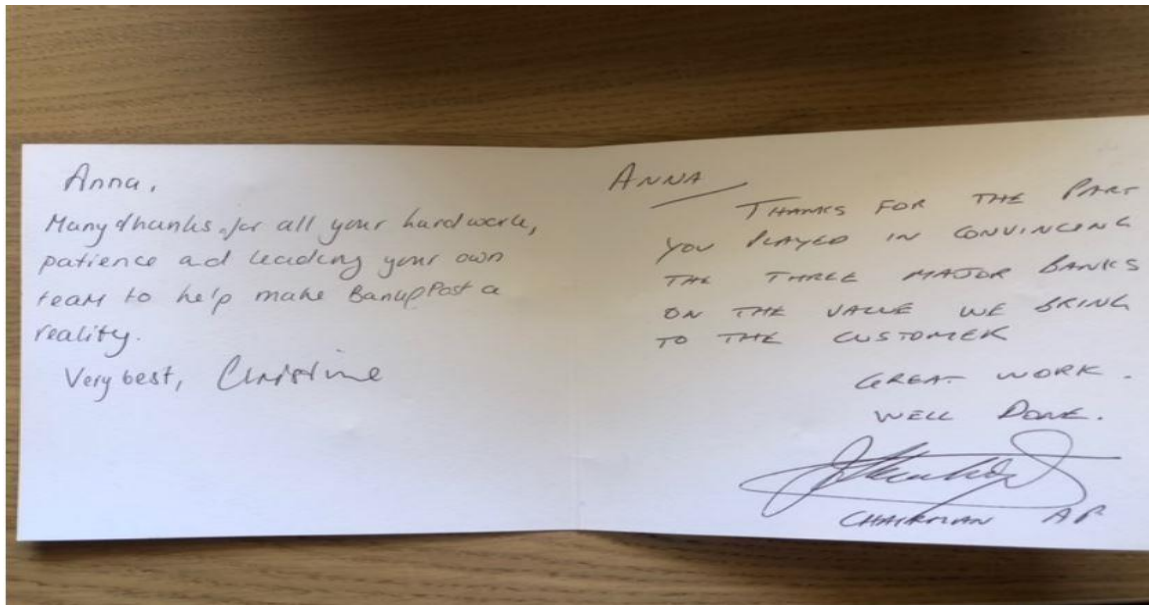 Anna,
Many thanks for all your hard work,
patience and leading your own
team to help make Bank@Post a
reality.
Very best, Christine
ANNA
THANKS FOR THE PART
YOU PLAYED IN CONVINCING
THE THREE MAJOR BANKS
ON THE VALUE WE BRING
TO THE CUSTOMER
GREAT WORK.
WELL DONE.
CHAIRMAN AP